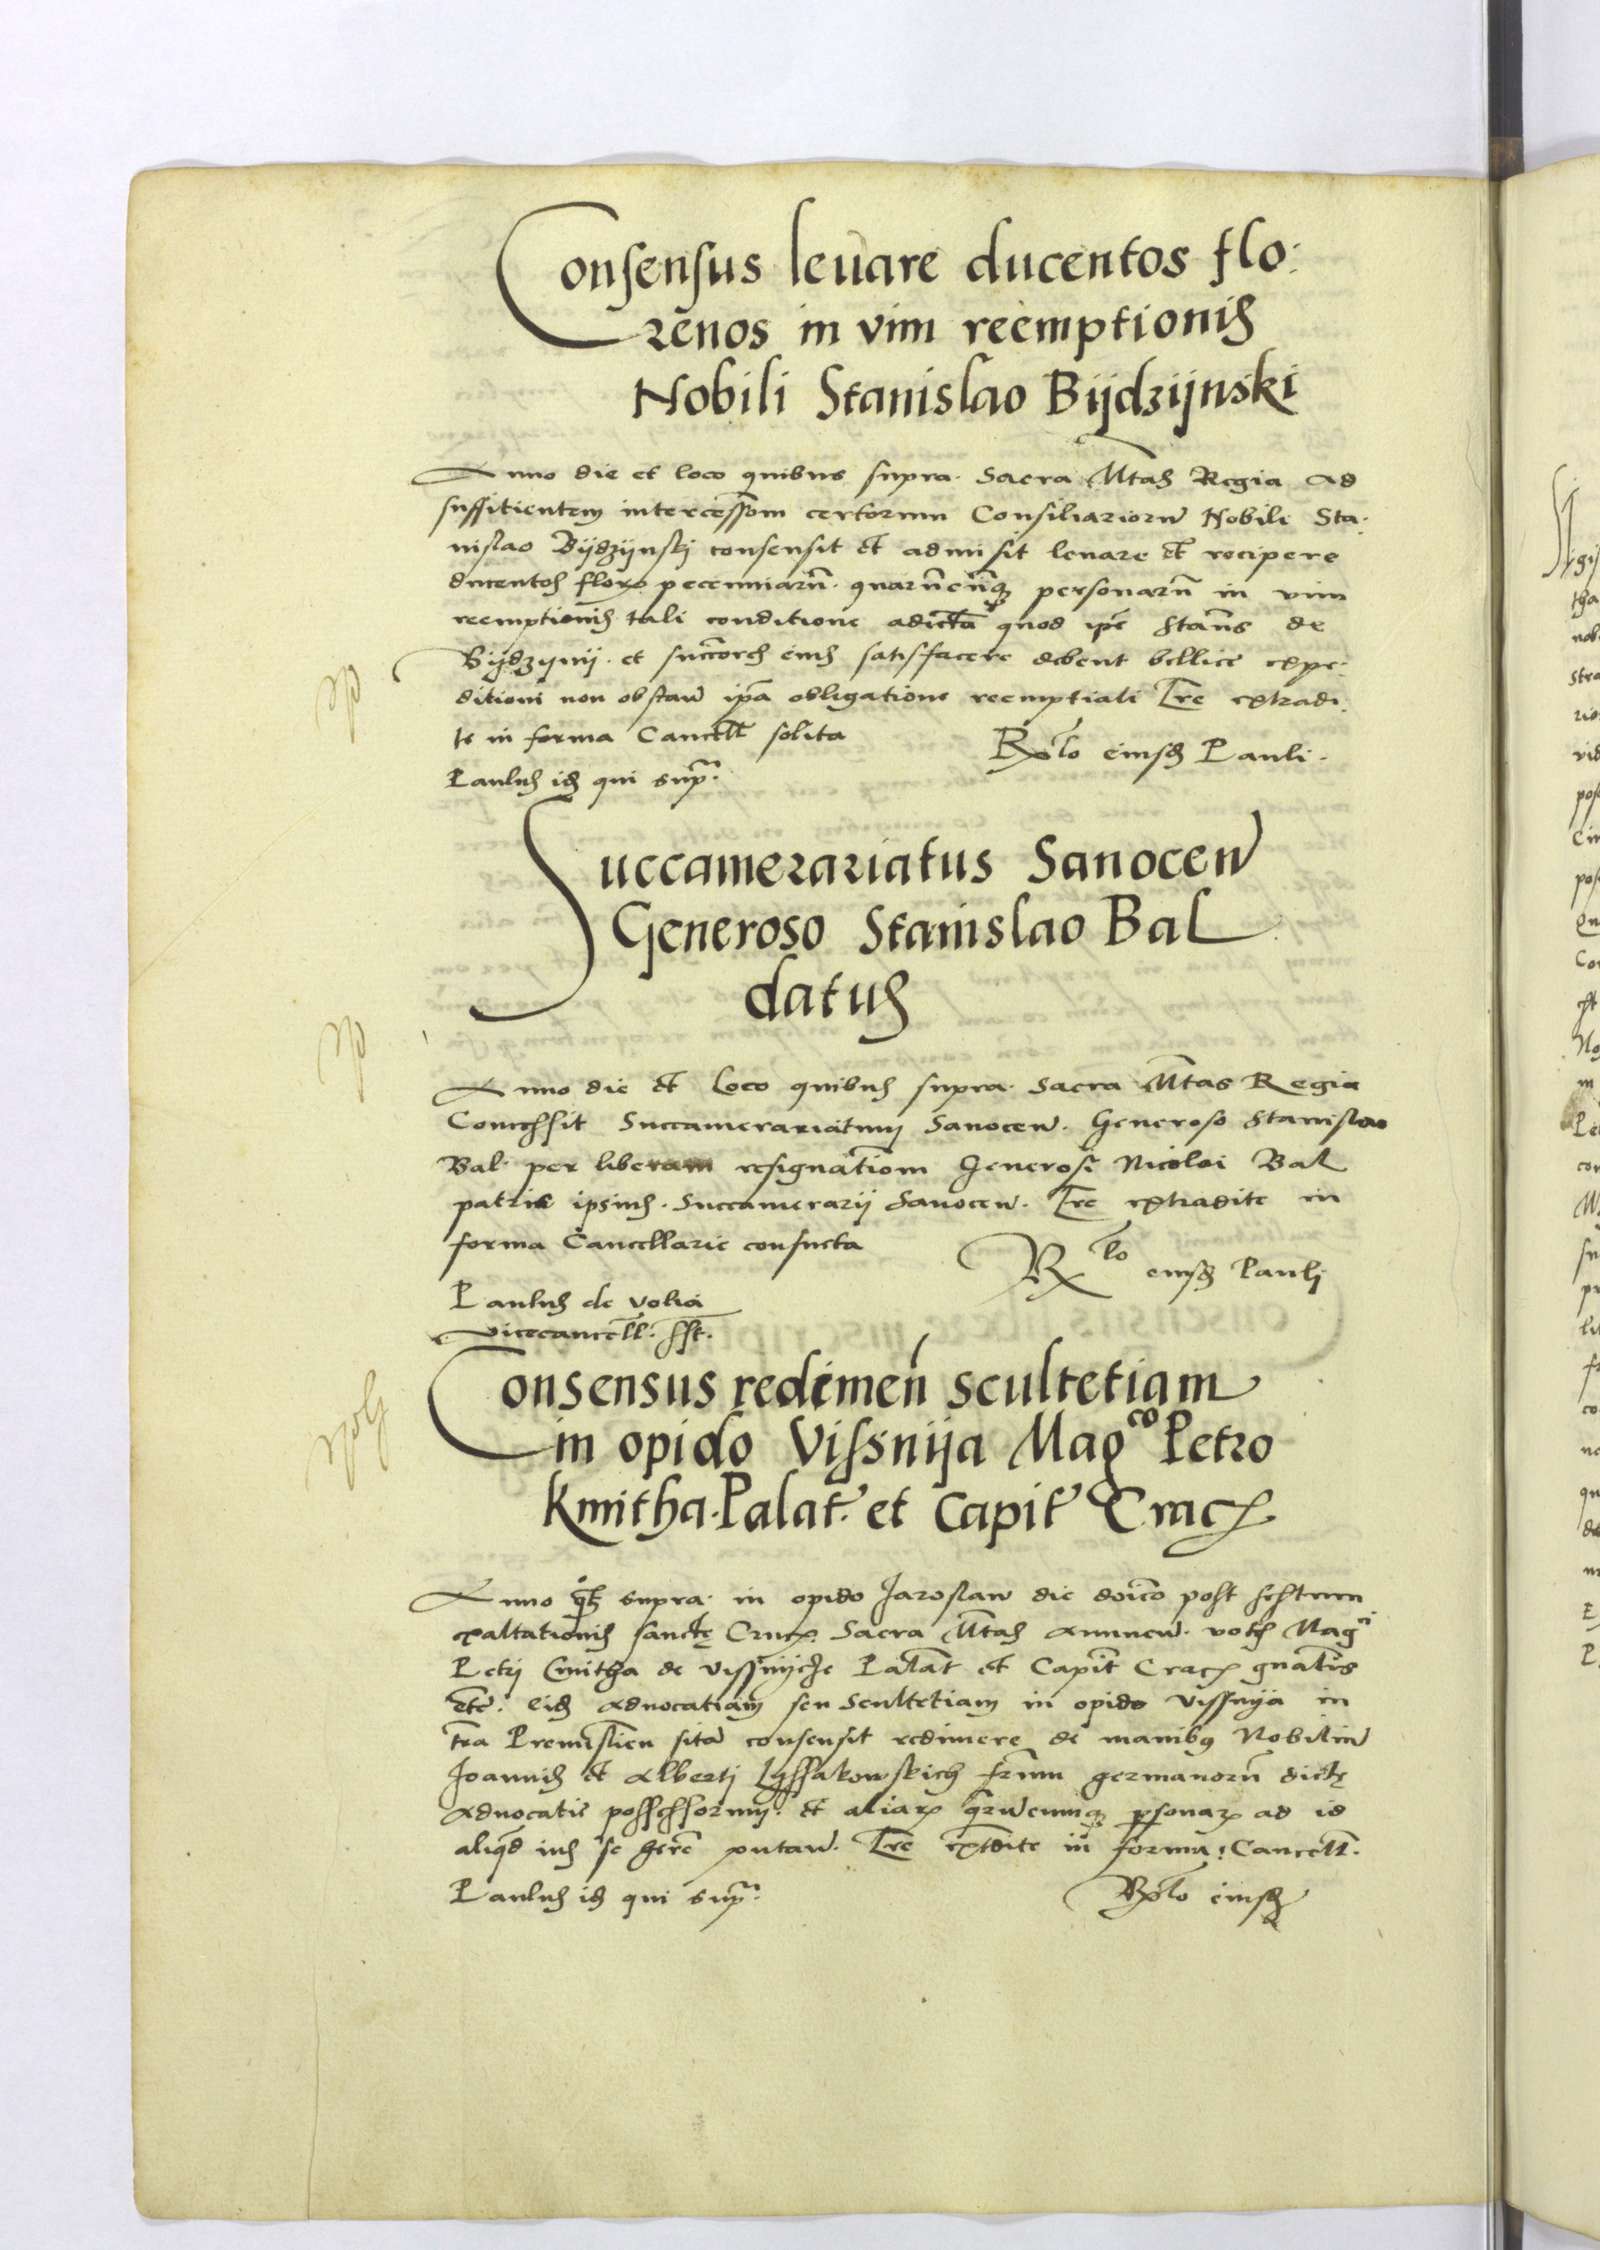 Consensus levare ducentos flo:
renos in vim reemptionis
Nobili Stanislao Bijdzijnski
Anno die et loco quibus supra. Sacra Mtas Regia ad
suffitientem intercessiom certorum Consiliariorum Nobili Sta:
nislao Bijdzijnskj consensit et admisit levare et recipere
ducentos floro pecunniarum. quarumcunque personarum in vim
reemptionis tali conditione adiecta quod ipse Stans de
Bijdzijnij. et successores eius satisfacere debent bellice expe:
ditioni non obstan ipsa obligatione reemptiali Lre extradi
te in forma Cancell solita
Rlo eiusdem Pauli.
Paulus idem qui supra.
Succamerariatus Sanocen
Generoso Stanislao Bal
datus
Anno die et loco quibus supra. Sacra Mtas Regia
Concessit Succamerariatum Sanocen. Generoso Stanislao
Bal. per liberam resignatiom Generosi Nicolai Bal
patris ipsius. Succamerarij Sanocen. Lre extradite in
forma Cancellarie consueta
Rlo eiusdem Paulj
Paulus de Volia
Vicecancell. sst.
Consensus redimen scultetiam
in opido Vissnija Magco Petro
Kmitha. Palat. et Capit Crac
Anno quo supra. in opido Jaroslaw die doico post festum
exaltationis sancte Crucis Sacra Mtas Annuen. votis Magci
Petrj Cmitha de Vissnijcze Palat et Capit Crac gnalis
etc. eidem Advocatiam seu Scultetiam in opido Vissnija in
tra Premislien sitam consensit redimere de manibus Nobilium
Joannis et Albertj Lyssakowskich frum germanorum dicte
Advocatie possessorum. et aliarum quarumcunque personarum ad id
aliquod ius se here putan. Lre extradite in forma Cancell.
Paulus idem qui supra.
Rlo eiusdem